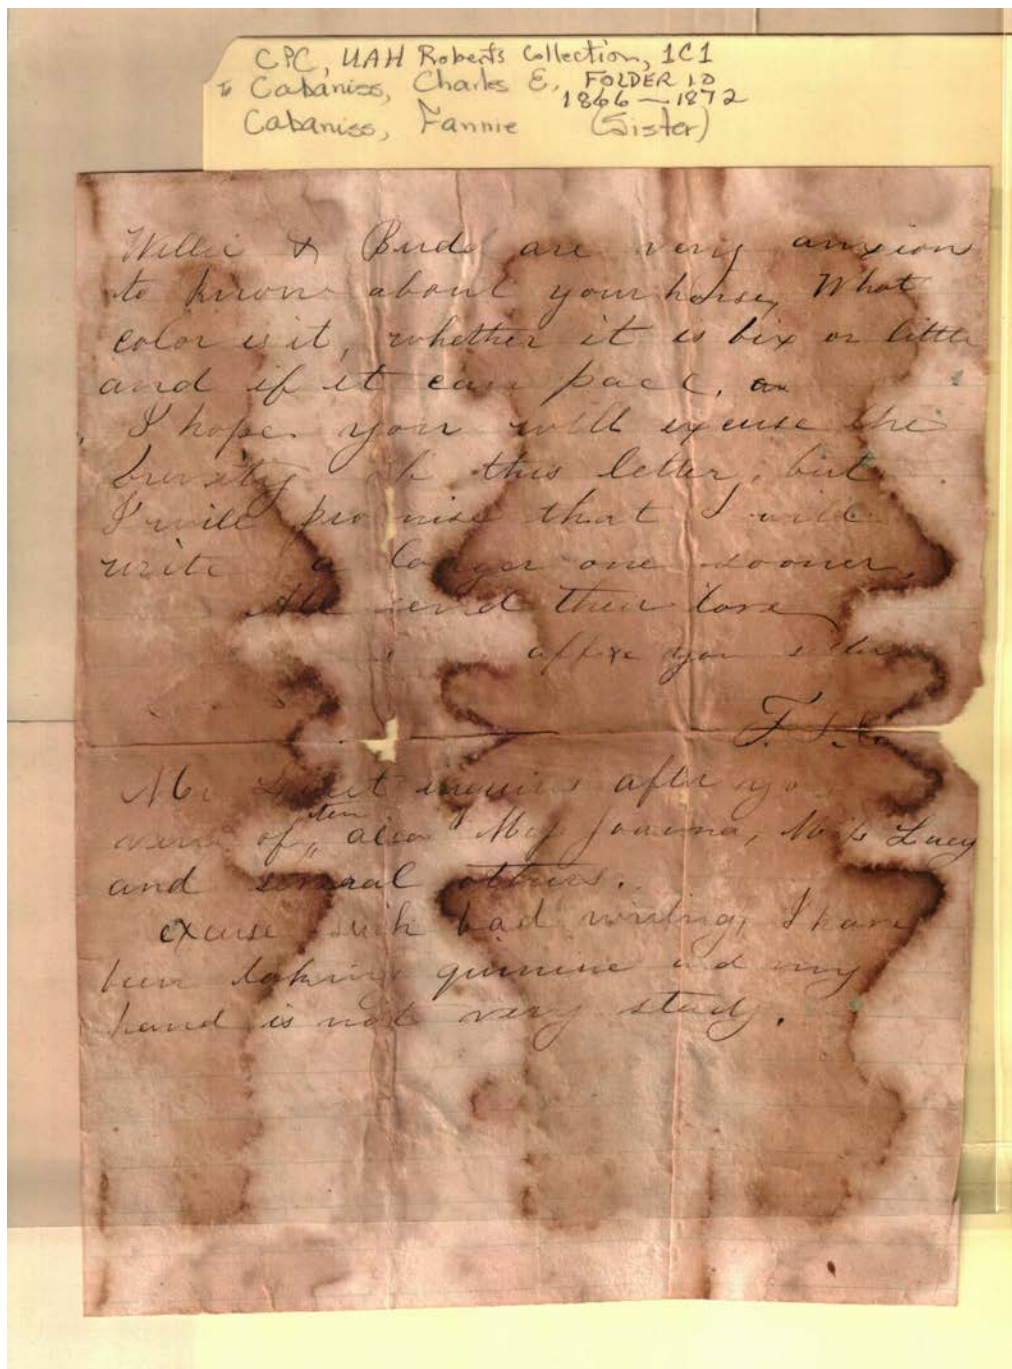 CPC, UAH Roberts Collection, 1C1
to Cabaniss, Charles E, FOLDER 10
1866 — 1872
Cabaniss, Fannie (Sister)
Willie & Bird are very anxion
to know about your horse, What
color is it, whether it is bix or little
and if it can pace, an
I hope you will excuse the
brevity of this letter, but
I will promise that I will
write a longer one sooner.
All send their love
affxe your sister
F. S. C.
Mr inquires after yo
very often, also Miss Joanna, Miss Lucy
and several others.
excuse such bad writing, I have
been taking quinine and my
hand is not very study.